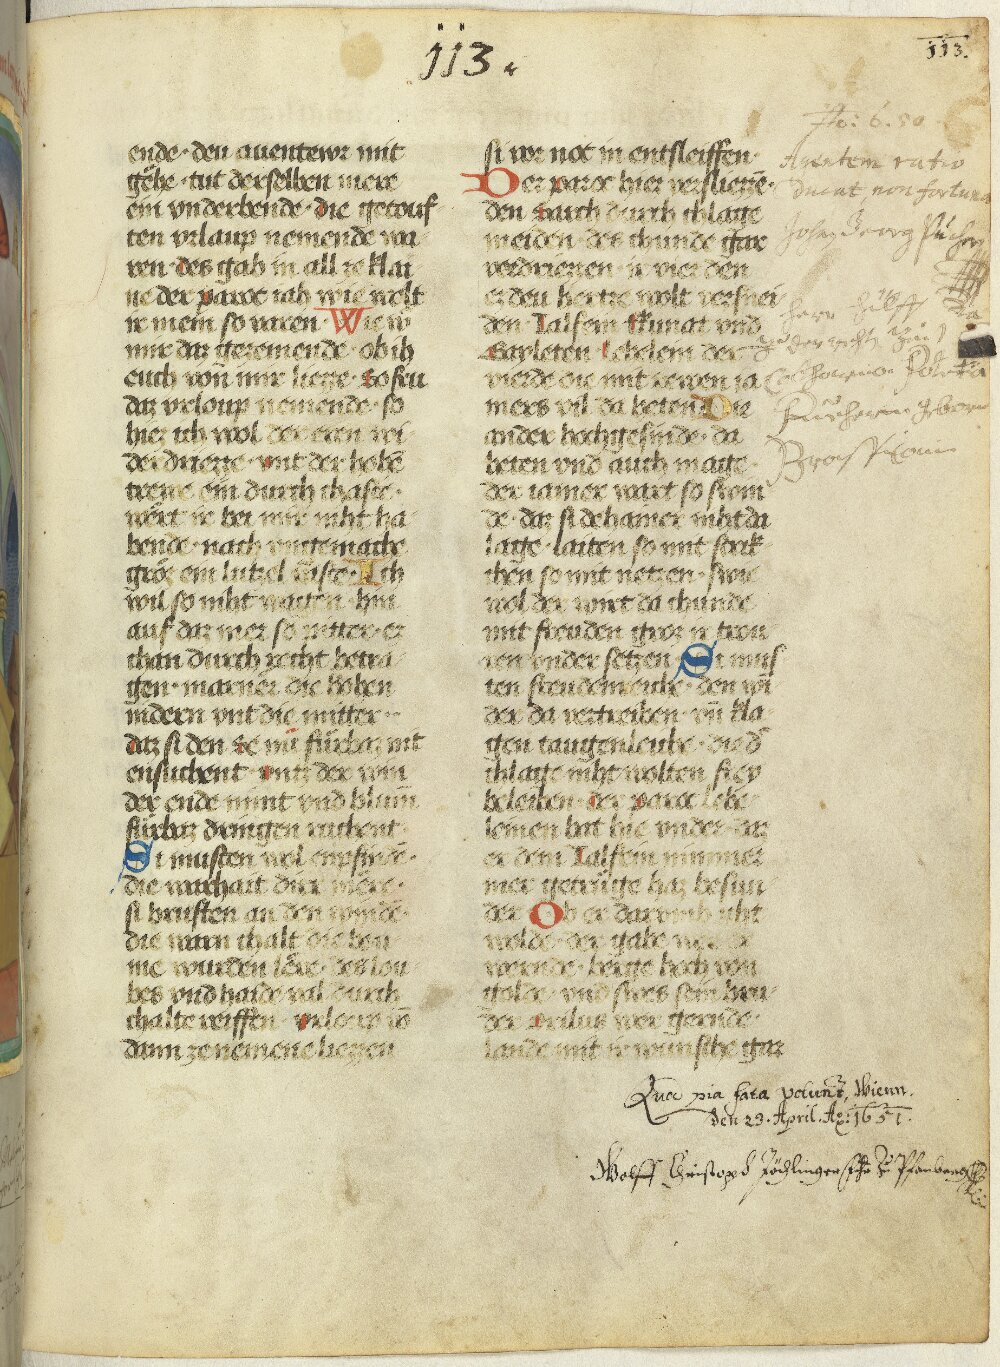 113.
113.
ende · den auentewr mit
gebe · tut derselben mere
ein vnderbende · die getouf
ten vrlaup nemende wa
ren · des gab in all ze klai
ne der paroc iah wie wolt
ir mein so varen · Wie w
mir daz gezemende · ob ih
euch von mir liezze · so seu
daz vrloup nemende · so
hiez ich wol der eren wi
derdriezze · vnt der hohē
trewe ein durch chaste ·
wert ir bei mir niht ha
bende · nach vngemache
groz ein lutzel raste · Ich
wil so niht wagen · hin
auf daz mer so pitter · er
chan durch recht betra
gen · marner die hohen
nidern vnt die mitter ·
daz si den se nu fürbaz nit
ensuchent · vntz der win
der ende nimt vnd blum̄
fürbaz dringen ruchent ·
Si musten wol enpfindē ·
die warhait dirr mere ·
si hrusten an den windē ·
die warn chalt die bou
me wurden lere · des lou
bes vnd haide val durch
chalte reiffen · vrloup w
dann ze nemene liezzen
si vor not in entsleiffen ·
Der paroc hiez versliezzē ·
den barch durch chlage
meiden · des chunde gar
verdriezen · ir vier den
er den hertze wolt versnei
den · Talfein kunat vnd
Sarleten · lehelein der
vierde die mit rewen ia
mers vil da heten · Die
ander hochgesinde · da
heten vnd auch mage ·
der iamer wart so swin
de · daz si dehainer niht da
lage · laiten so mit strik
chen so mit netzen · swie
wol der wirt da chunde
mit freuden groz ir trou
ren vnder setzen · Si mus
ten freudenreiche · den wi
der da vertreiben · vn̄ kla
gen taugenleiche · die d̄
chlage niht wolten frey
beleiben · der paroc lehe
leinen bat hie vnder · daz
er dem Talfein nimmer
mer getrüge haz besun
der Ob er darvmb iht
wolde · der gabe wer er
wernde · berge hoch von
golde · vnd swes sein bru
der vrilus wer gernde ·
lande mit ir wunsche gar
Ao: 6.50
ratio
ducat, non fortuna
Johan Georg
Herr hilff
Quo pia fata volunt, Wienn.
den 23. April. Ao: 1651.
Wolff Christoph